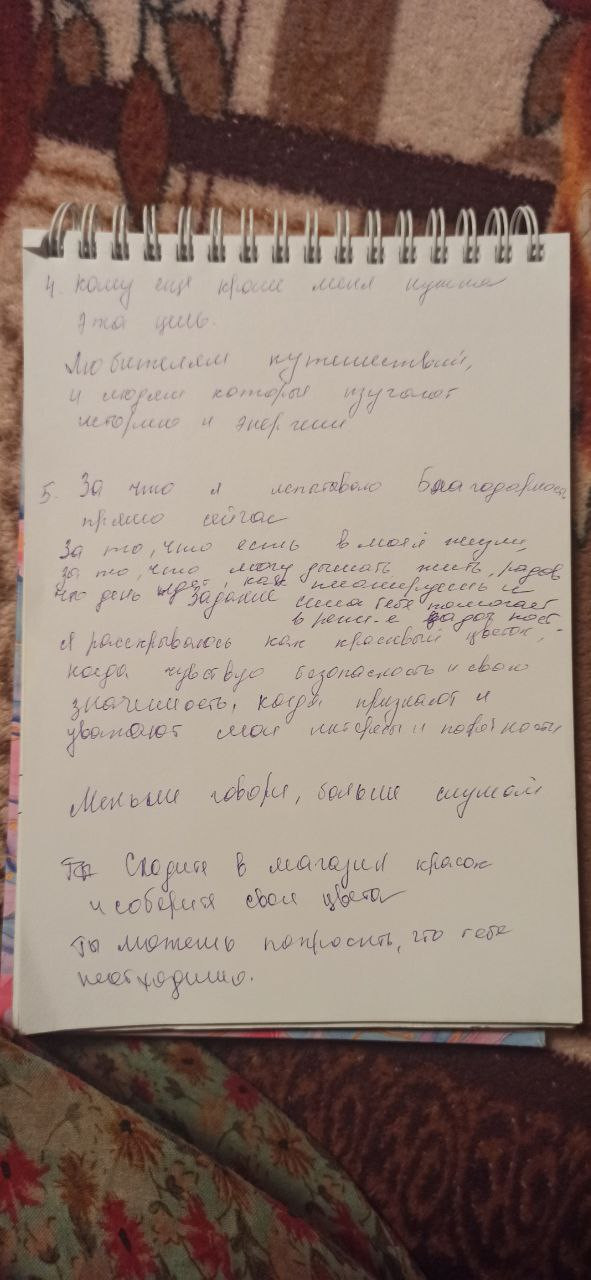 4. Кому ещё кроме меня нужна
эта цель.
Любителям путешествий,
и людям которые изучают
историю и энергии
5. За что я испытываю благодарность
прямо сейчас
За то, что есть в моей жизни,
за то, что могу дышать, жить, радов
что день, как и
Задание сила тебе помогает
в решен-е задач
Я раскрываюсь как красивый цветок,
когда чувствую безопасность и свою
значимость, когда признают и
уважают мои интересы и потребности
Меньше говори, больше слушай
Сходите в магазин красок
и соберите свои цвета
Ты можешь попросить, что тебе
необходимо.